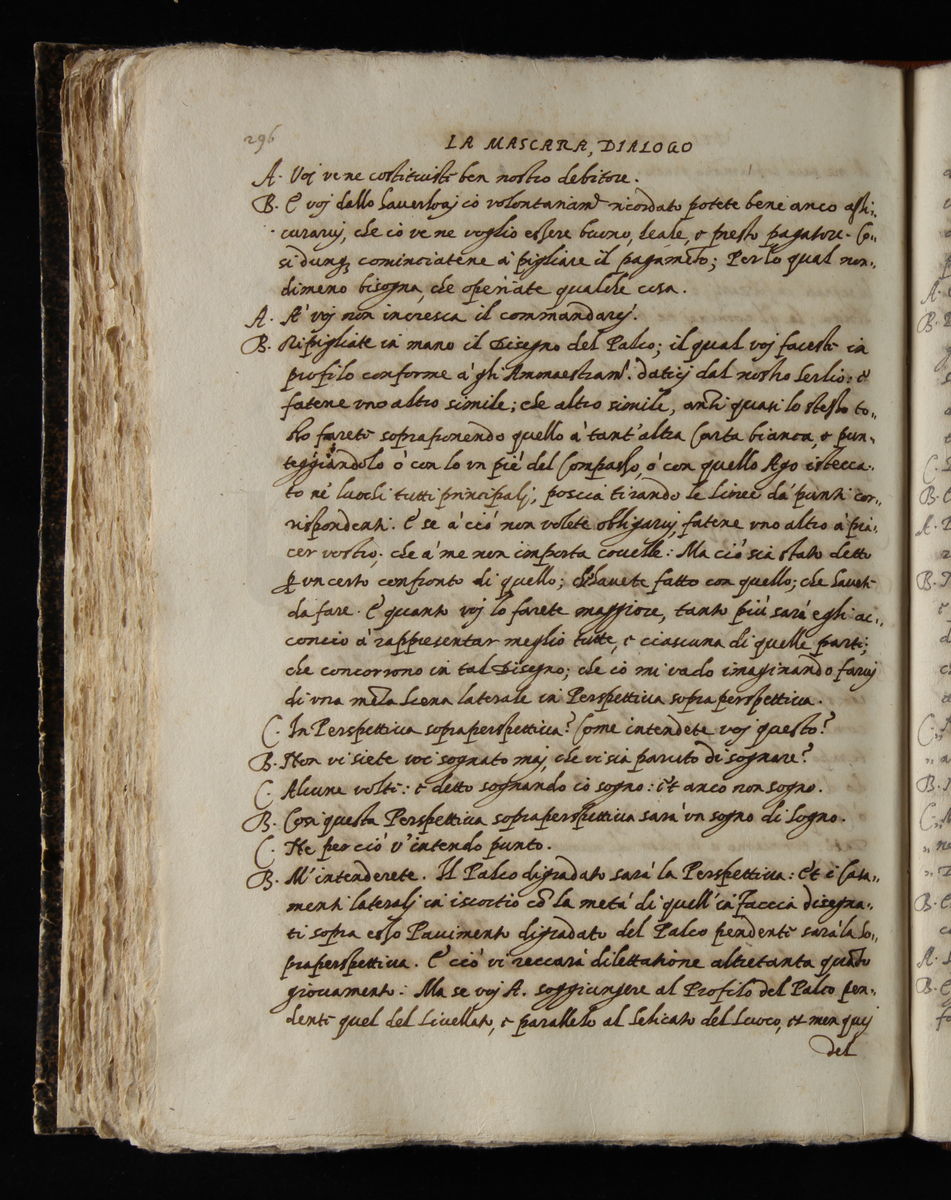 296
LA MASCARA, DIALOGO
A. Voi ve ne costituiste ben nostro debitore.
B. E voj dallo haverloaj ciò volontariam.te ricordato potete bene anco assi-
curarvj, che ciò ve ne voglio essere buono, leale, e presto pagatore. Co-
sì dunq; cominciatene à pigliare il pagam̃to; Per lo qual non-
dimeno bisogna, che operiate qualche cosa.
A. A' voj non incresca il commandarcj.
B. Ripigliate in mano il Disegno del Palco; il qual voj faceste in
profilo conforme à gli Ammaestram.ti daticj dal nostro Serlio: e
fatene vno altro simile; che altro simile, anzi quasi lo stesso to-
sto farete soprapponendo quello à tant'altra Carta bianca, e pun-
teggiandolo ò con lo vn piè del Compasso, ò con quello Ago istecca-
to ne' luochi tutti principalj; poscia tirando le linee da' punti cor-
rispondenti. E se à ciò non volete obligarvj, fatene vno altro à pia-
cer vostro; che à me non importa covelle: Ma ciò sia stato detto
ꝑ vn certo confronto di quello; c'havete fatto con quello; che havete
da fare. E quanto voj lo farete maggiore, tanto più sarà egli ac-
concio à rappresentar meglio tutte, e ciascuna di quelle parti;
che concorrono in tal Disegno; che ciò mi vado imaginando farvj
di vna meza Scena laterale in Perspettiua sopraperspettiua.
C. In Perspettiua sopraperspettiua? Come intendete voj questo?
B. Non vi siete voi sognato maj, che vi sia paruto di sognare?
C. Alcune volte: e detto sognando ciò sogno: et anco non sogno.
B. Con questa Perspettiua sopraperspettiua sarà vn sogno di sogno.
C. Ne per ciò v'intendo punto.
B. M'intenderete. Il Palco digradato sarà la Perspettiua: et i Casa-
menti lateralj in iscortio cõ la metà di quell'in faccia disegna-
ti sopra esso Pavimento digradato del Palco pendente sarà la So-
praperspettiua. E ciò vi reccarà dilettatione altretanta quãto
giovamento: Ma se voj A. soggiungere al Profilo del Palco pen-
dente quel del Livellato, e parallelo al Selicato del Luoco, et men quj
del